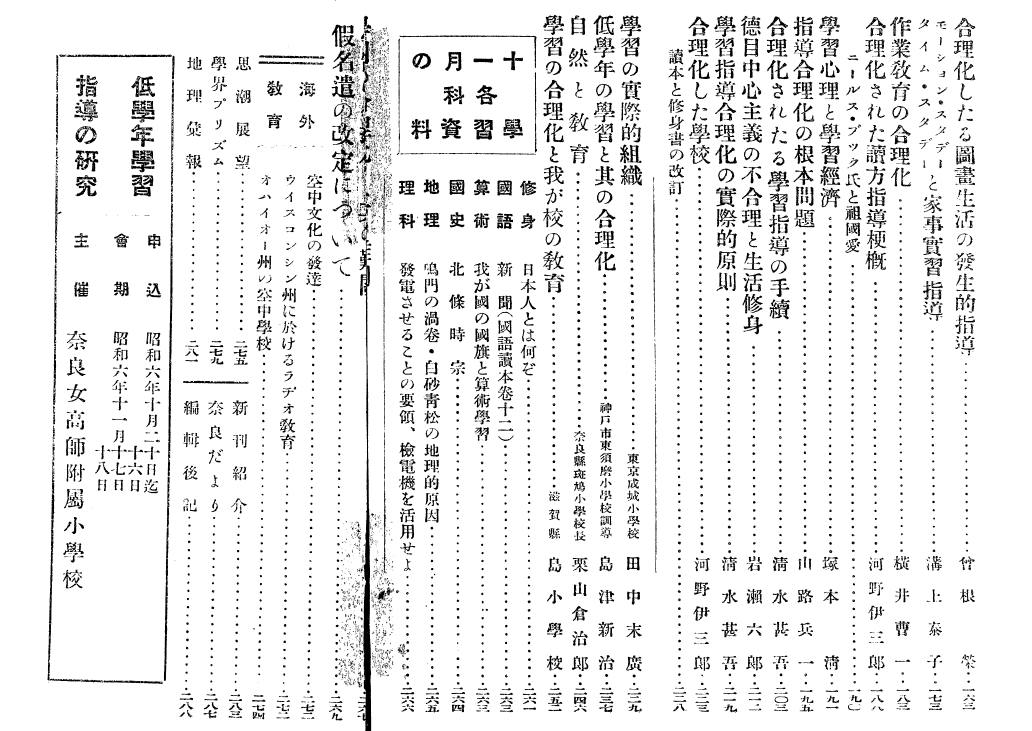 合理化したる圖畫生活の發生的指導 曾根 榮 一六三
モーション・スタデーと家事實習指導 溝上泰子 一七三
タイム・スタデー
作業教育の合理化 橫井曹一 一八三
合理化された讀方指導梗槪 河野伊三郎 一八八
ニールス・ブック氏と祖國愛 一九〇
學習心理と學習經濟 塚本 淸 一九一
指導合理化の根本問題 山路兵一 一九五
合理化されたる學習指導の手續 淸水甚吾 二〇三
德目中心主義の不合理と生活修身 岩瀨六郎 二一二
學習指導合理化の實際的原則 淸水甚吾 二一九
合理化した學校 河野伊三郎 二三三
讀本と修身書の改訂 二三八
學習の實際的組織 東京成城小學校 田中末廣 二三九
低學年の學習と其の合理化 神戶市東須磨小學校訓導 島津新治 二三七
自然と教育 奈良縣斑鳩小學校長 栗山倉治郎 二四六
學習の合理化と我が校の敎育 滋賀縣 島小學校 二五二
十一月の各科學習資料
修身 日本人とは何ぞ 二六一
國語 新聞(國語讀本卷十二) 二六三
算術 我が國の國旗と算術學習 二六三
國史 北條時宗 二六四
地理 鳴門の渦卷・白砂靑松の地理的原因 二六五
理科 發電させることの要領、檢電機を活用せよ 二六六
假名遣の改定について 二六九
海外敎育
空中文化の發達 二七二
ウイスコンシン州に於けるラヂオ敎育 二七三
オハイオー州の空中學校 二七四
思潮展望 二七五
學界プリズム 二七九
地理彙報 二八一
新刊紹介 二八三
奈良だより 二八七
編輯後記 二八八
低學年學習指導の硏究
申込 昭和六年十月二十日迄
會期 昭和六年十一月 十六日 十七日 十八日
主催 奈良女高師附屬小學校